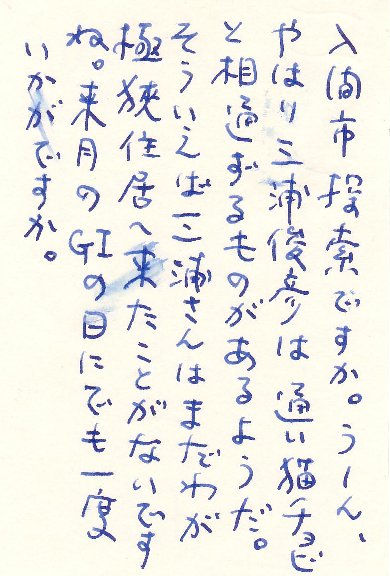 入間市探索ですか。うーん、
やはり三浦俊彦は通い猫チョビ
と相通ずるものがあるようだ。
そういえば三浦さんはまだわが
極狭住居へ来たことがないです
ね。来月のGIの日にでも一度
いかがですか。